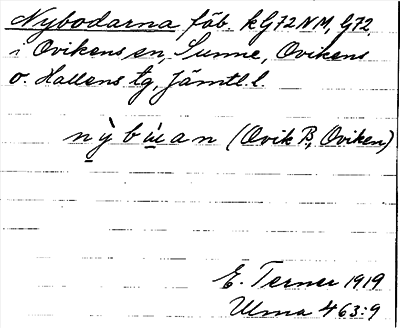 Nybodarna fäb. kG72NM, G72
i Ovikens sn, Sunne, Ovikens
o. Hallens tg, Jämtl. l.
nỳbùan (Ovik B, Oviken)
E. Terner 1919
Ulma 463:9